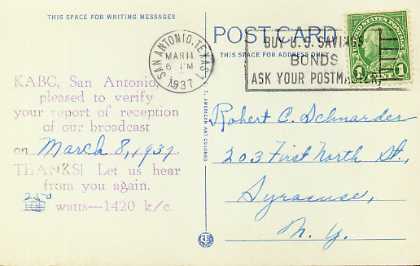 THIS SPACE FOR WRITING MESSAGES
POST CARD
THIS SPACE IS FOR ADDRESS ONLY
SAN ANTONIO, TEXAS
MAR 11
6 PM
1937
BUY U.S. SAVINGS
BONDS
ASK YOUR POSTMASTER
1 1
KABC, San Antonio,
pleased to verify
your report of reception
of our broadcast
on March 8, 1937
THANKS! Let us hear
from you again.
250
watts—1420 k/c.
Robert C. Schnarder
203 First North St,
Syracuse,
N. Y.